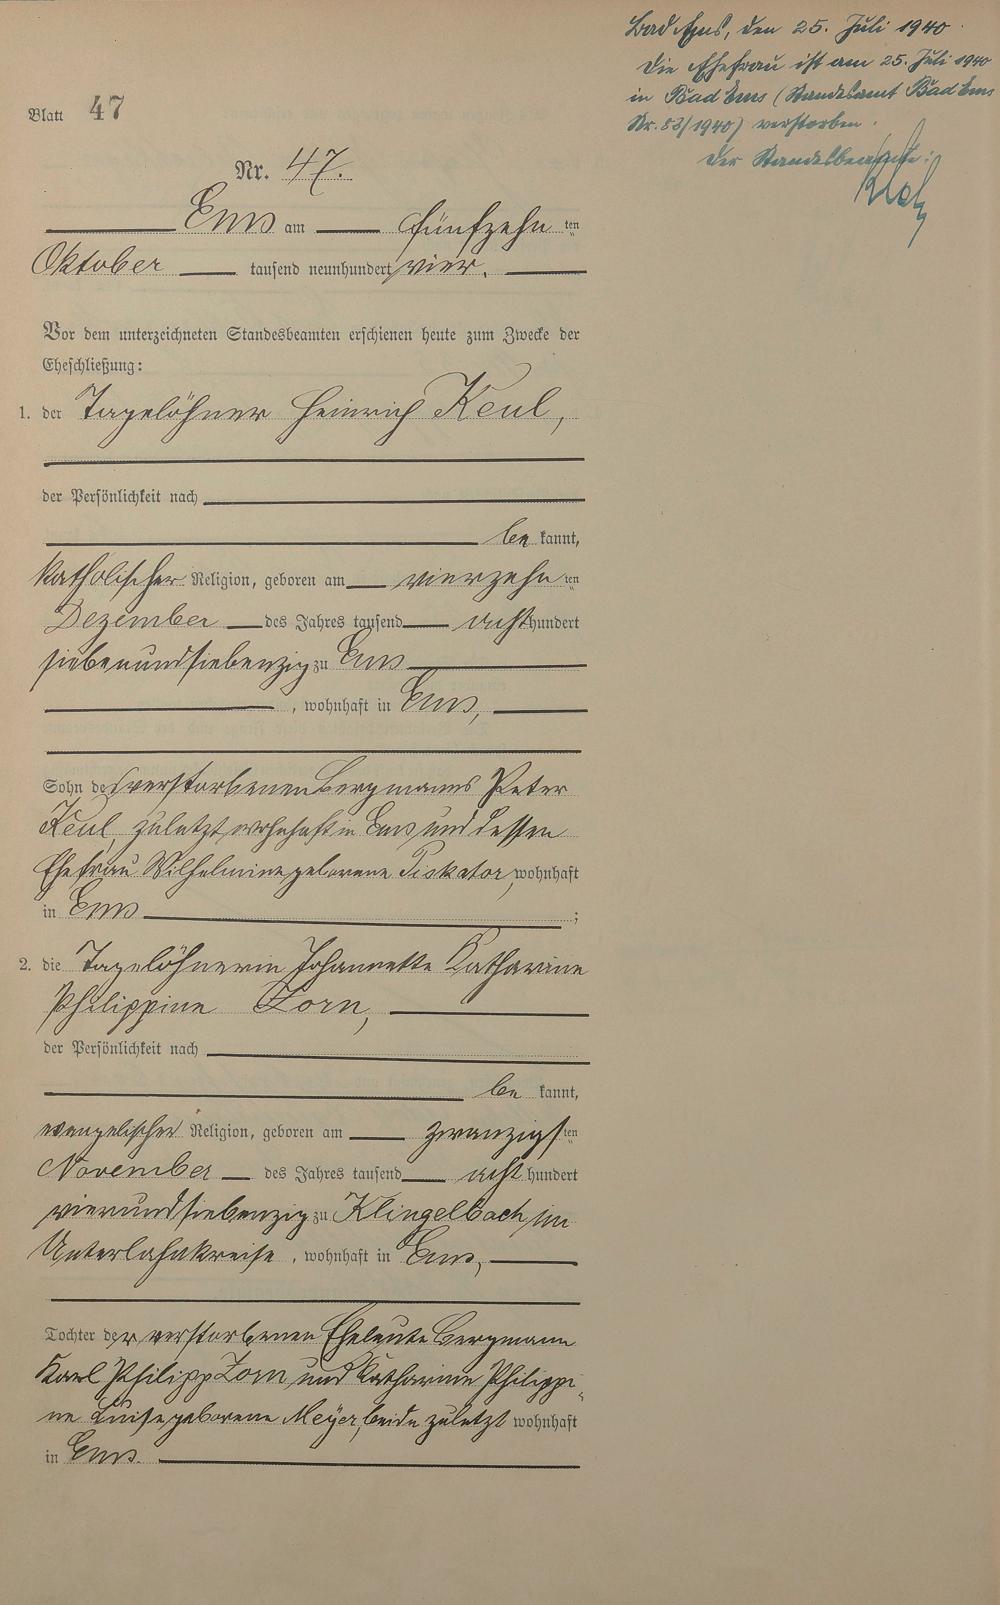 Bad Ems, den 25. Juli 1940
Die Ehefrau ist am 25. Juli 1940
in Bad Ems (Standesamt Bad Ems
Nr. 83/1940) verstorben.
Der Standesbeamte:
Blatt 47
Nr. 47.
Ems am fünfzehnten
Oktober tausend neunhundert vier.
Vor dem unterzeichneten Standesbeamten erschienen heute zum Zwecke der
Eheschließung:
1. der Tagelöhner Heinrich Keul,
der Persönlichkeit nach
bekannt,
katholischer Religion, geboren am vierzehnten
Dezember des Jahres tausend achthundert
siebenundsiebenzig zu Ems
, wohnhaft in Ems,
Sohn des verstorbenen Bergmanns Peter
Keul, zuletzt wohnhaft in Ems und dessen
Ehefrau Wilhelmine geborene Piskator, wohnhaft
in Ems ;
2. die Tagelöhnerin Johannette Katharine
Philippine Zorn,
der Persönlichkeit nach
bekannt,
evangelischer Religion, geboren am zwanzigsten
November des Jahres tausend achthundert
vierundsiebenzig zu Klingelbach im
Unterlahnkreise, wohnhaft in Ems,
Tochter der verstorbenen Eheleute Bergmann
Karl Philipp Zorn und Katharine Philippi-
ne Luise geborene Meyer, beide zuletzt wohnhaft
in Ems.